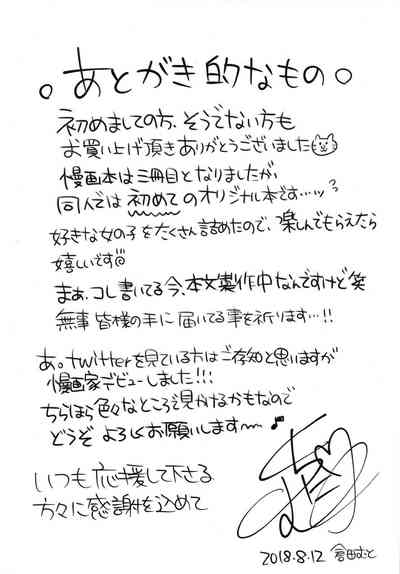 。あとがき的なもの。
初めましての方、そうでない方も
お買い上げ頂きありがとうございました
漫画本は三冊目となりましたが、
同人では初めてのオリジナル本です…ッ?
好きな女の子をたくさん詰めたので、楽しんでもらえたら
嬉しいです
まあ、コレ書いてる今、本文製作中なんですけど笑
無事皆様の手に届いてる事を祈ります…!!
あ。twitterを見ている方はご存知と思いますが
漫画家デビューしました!!!
ちらほら色々なところで見かけるかもなので
どうぞよろしくお願いします〜♪
いつも応援して下さる
方々に感謝を込めて
2018.8.12 倉田むと